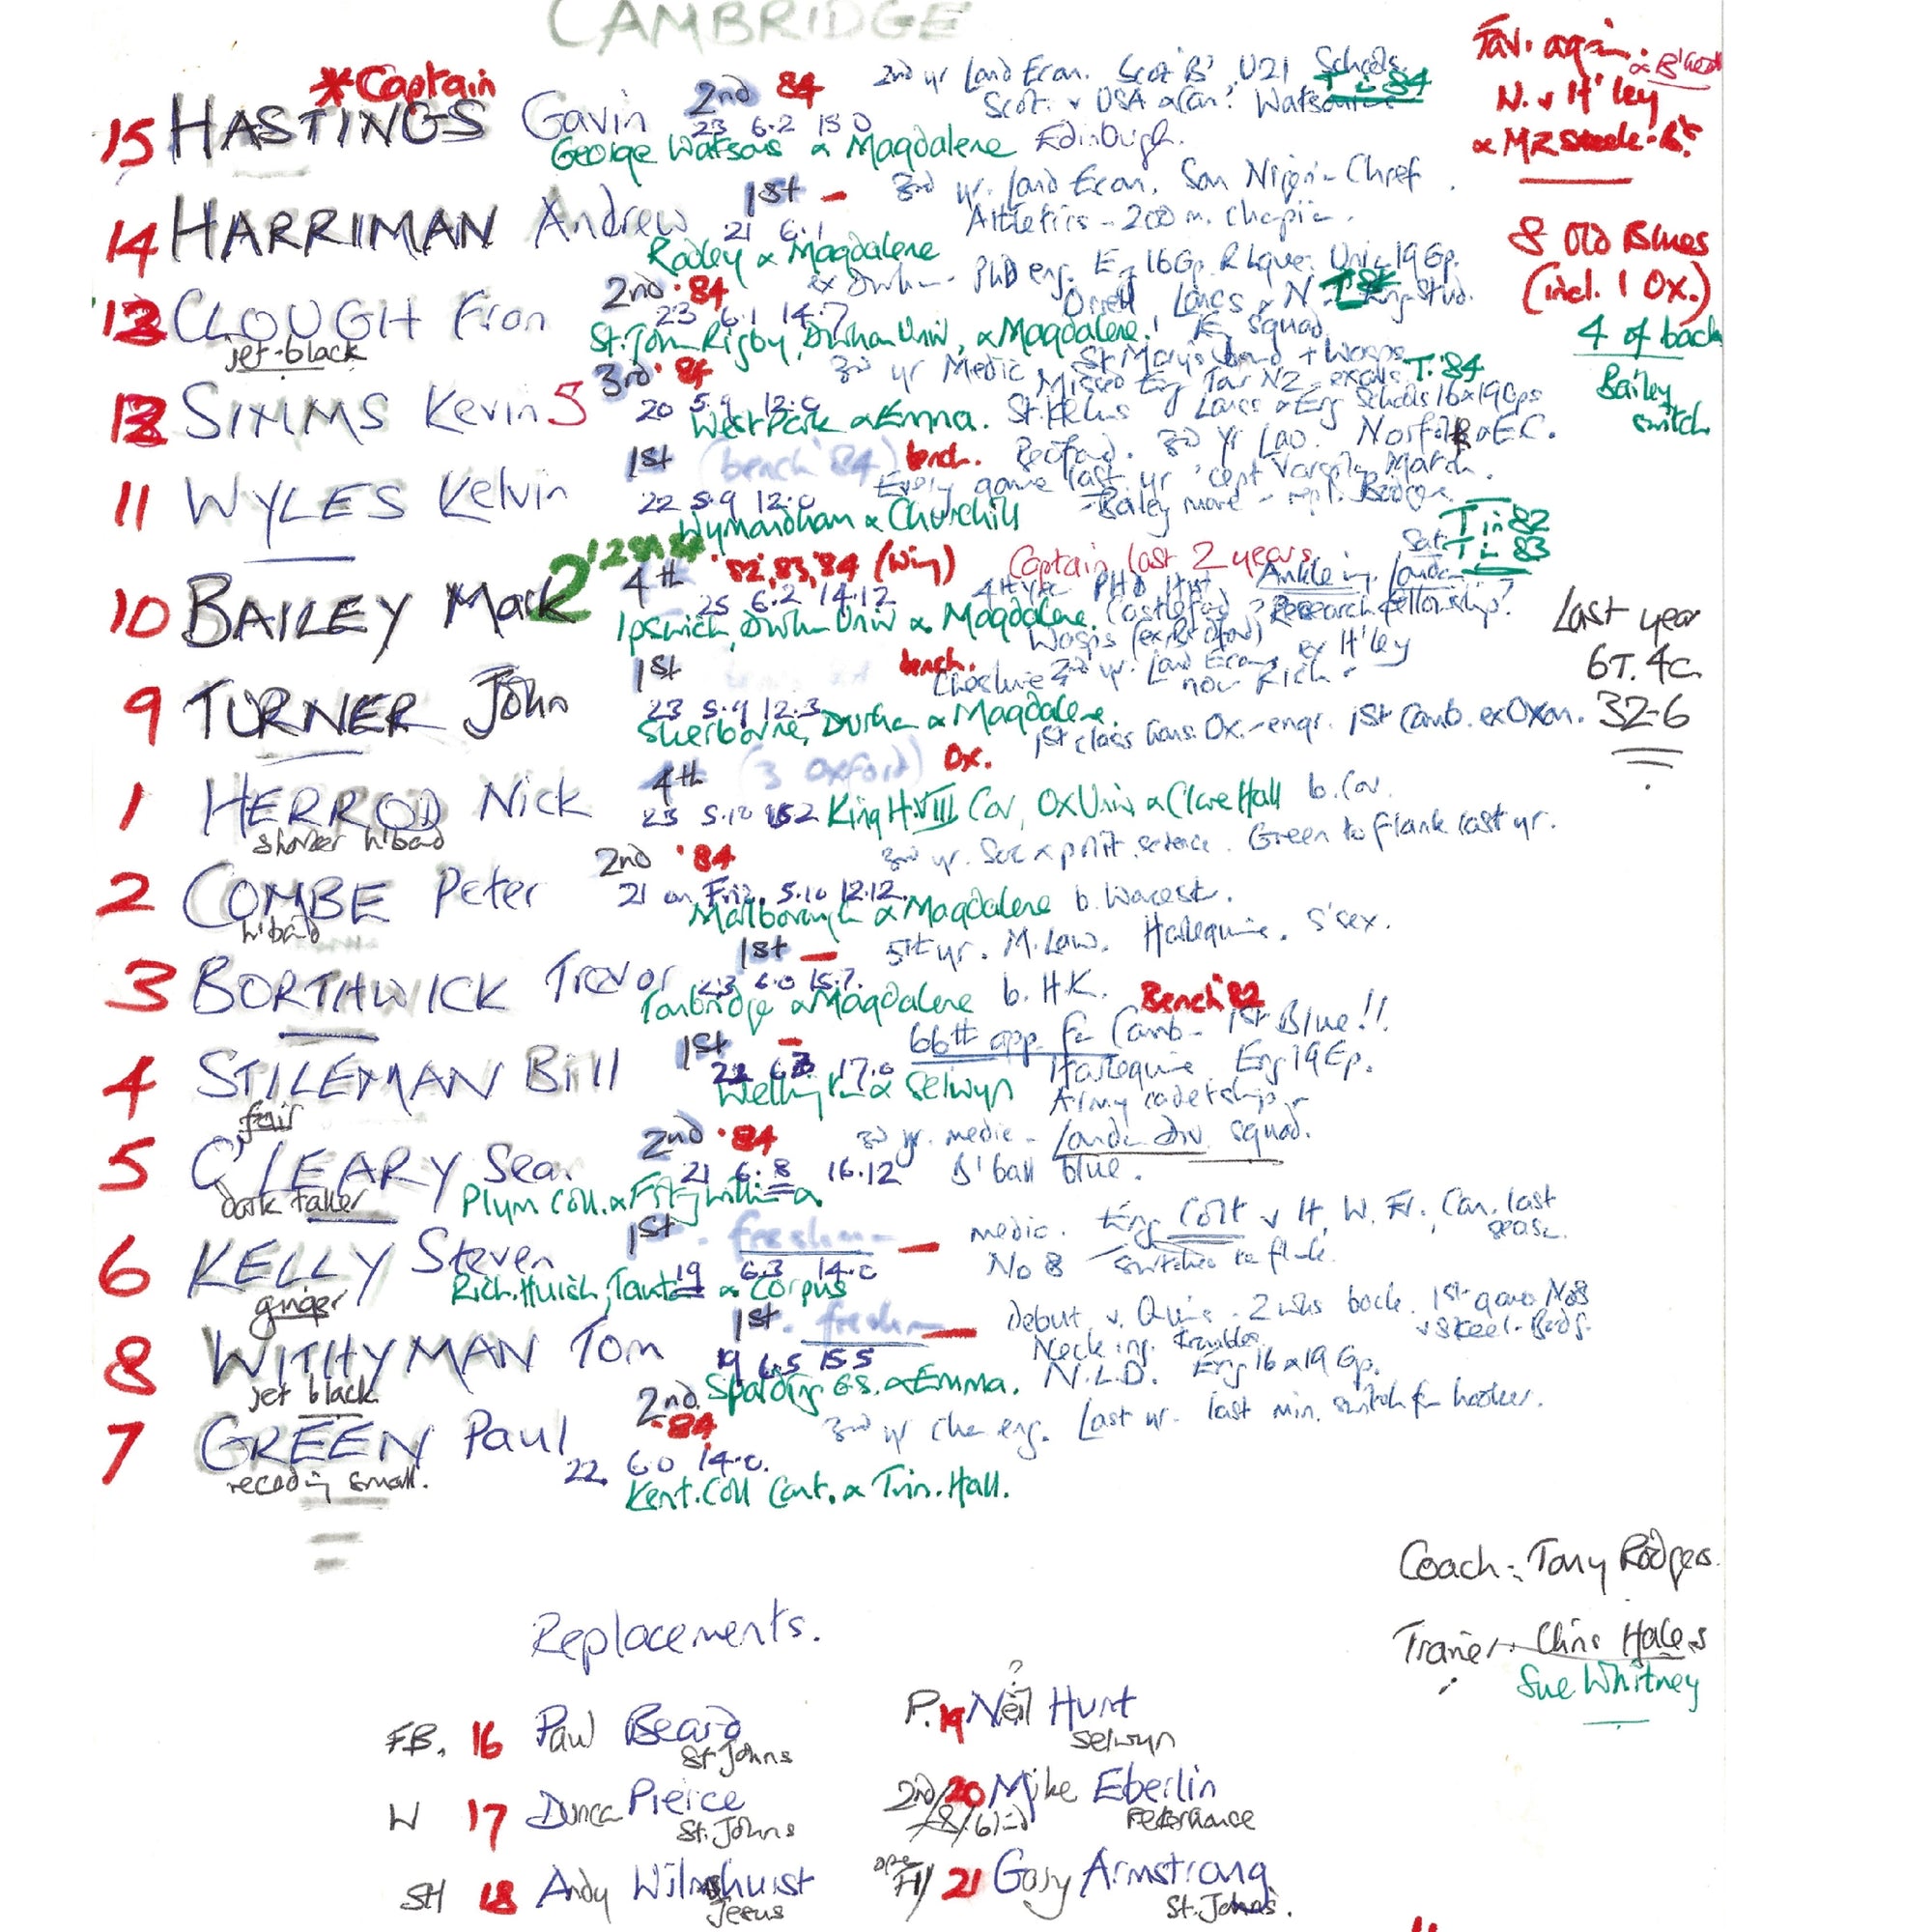 CAMBRIDGE
*Captain
15 HASTINGS Gavin 2nd 84
23 6.2 15 0
2nd yr Land Econ. Scot 'B' U21 Schools
T in 84
Scot. v USA
George Watsons & Magdalene Edinburgh.
14 HARRIMAN Andrew 1st –
21 6.1
3rd yr. Land Econ. Son Nigerian Chief
Athletics - 200 m.
Radley & Magdalene
CLOUGH Fran 2nd · 84
jet-black
23 6.1 14.7
ex Durham - PhD eng. 16 Gp. 19 Gp.
Orrell Lancs & N.
St. John Rigby, Durham Univ, & Magdalene! E squad
SIMMS Kevin 3rd · 84
20 5.9 12.0
3rd yr Medic St Marys + Wasps T. '84
Missed Eng Tour NZ - exams.
West Park & Emma. St. Helens Lancs & Eng Schools 16 & 19 Gps
11 WYLES Kelvin 1st (bench '84) bench.
22 5.9 12.0
Bedford. 3rd Yr Law. Norfolk & E.C.
Every game last yr 'cept Varsity Match.
Bailey moved - repl.
Wymondham & Churchill
T in 82
T in 83
10 BAILEY Mark 2 4th '82, 83, '84 (Wing)
Captain last 2 years
25 6.2 14.12
4th yr PHD Hist
Research fellowship?
Ipswich, Durham Univ & Magdalene. Castleford
Wasps (ex Bedford)
9 TURNER John 1st bench.
23 5.9 12.3
Cheshire 2nd yr. Land Econ. ex H'ley
now Rich.
Sherborne, Durham & Magdalene.
1st class hons. Ox. - engr. 1st Camb. ex Oxon.
1 HERROD Nick 4th (3 Oxford) Ox.
shorter h'band
23 5.10
King H. VIII Cov, Ox Univ & Clare Hall b. Cov.
2 COMBE Peter 2nd '84
h'band
3rd yr. Soc & polit. science. Green to flank last yr.
21 on Fri. 5.10 12.12.
Marlborough & Magdalene b. Worcest.
3 BORTHWICK Trevor 1st –
23 6.0 15.7.
5th yr. M. Law. Harlequins. S'sex.
Tonbridge & Magdalene b. H.K.
Bench '82
4 STILEMAN Bill 1st –
fair
17.0
66th app. for Camb - 1st Blue!!
Harlequins Eng 19 Gp.
Wellington & Selwyn Army cadetship
5 O'LEARY Sean 2nd · 84
dark taller
21 6.8 16.12
3rd yr. medic - London Div squad.
B'ball blue.
Plym Coll. & Fitzwilliam
6 KELLY Steven 1st - freshman –
ginger
19 6.3 14.0
medic. Eng Colt v It, W. Fr. Can. last
season.
No 8 switched to flank.
Rich. Huish, Taunton & Corpus
8 WITHYMAN Tom 1st - freshman –
jet black
19 6.5 15.5
Debut v. Quins - 2 wks back. 1st game No8
v Steel-Bods.
Neck inj. trouble.
Spalding G.S. & Emma. N.L.D. Eng 16 & 19 Gp.
7 GREEN Paul 2nd · 84
receding small.
22 6.0 14.0.
3rd yr Chem eng. Last yr - last min. switch fr hooker.
Kent. Coll Cant. & Trin. Hall.
Fav. again. & B'heath
N. v H'ley
& MR Steele-B's
8 Old Blues
(incl. 1 Ox.)
4 of back
Bailey
switch
Last year
6T. 4c.
32-6
Coach: Tony Rodgers.
Trainer: Chris Hales
Sue Whitney
Replacements.
FB. 16 Paul Beard
St Johns
W 17 Duncan Pierce
St. Johns
SH 18 Andy Wilmshurst
Jesus
?
P. 19 Neil Hunt
Selwyn
2nd/ 20 Mike Eberlin
Peterhouse
21 Gary Armstrong
St. Johns.